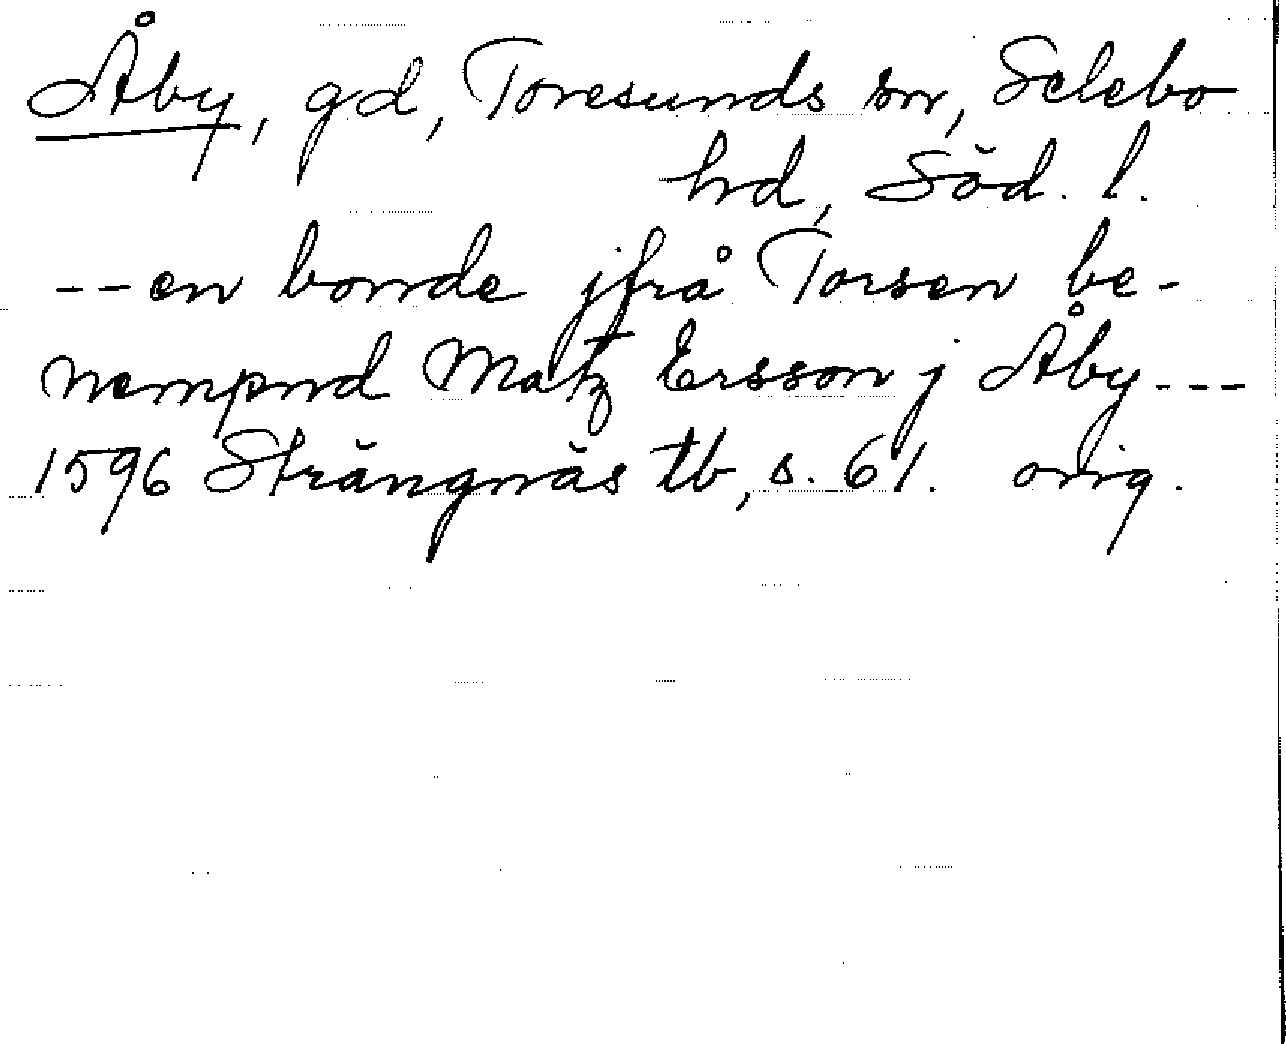 Åby, gd, Toresunds sn, Selebo
hd, Söd. l.
-- en bonde jfrå Torsen be-
nempnd Matz Ersson j Åby ---
1596 Strängnäs tb, s. 61. orig.